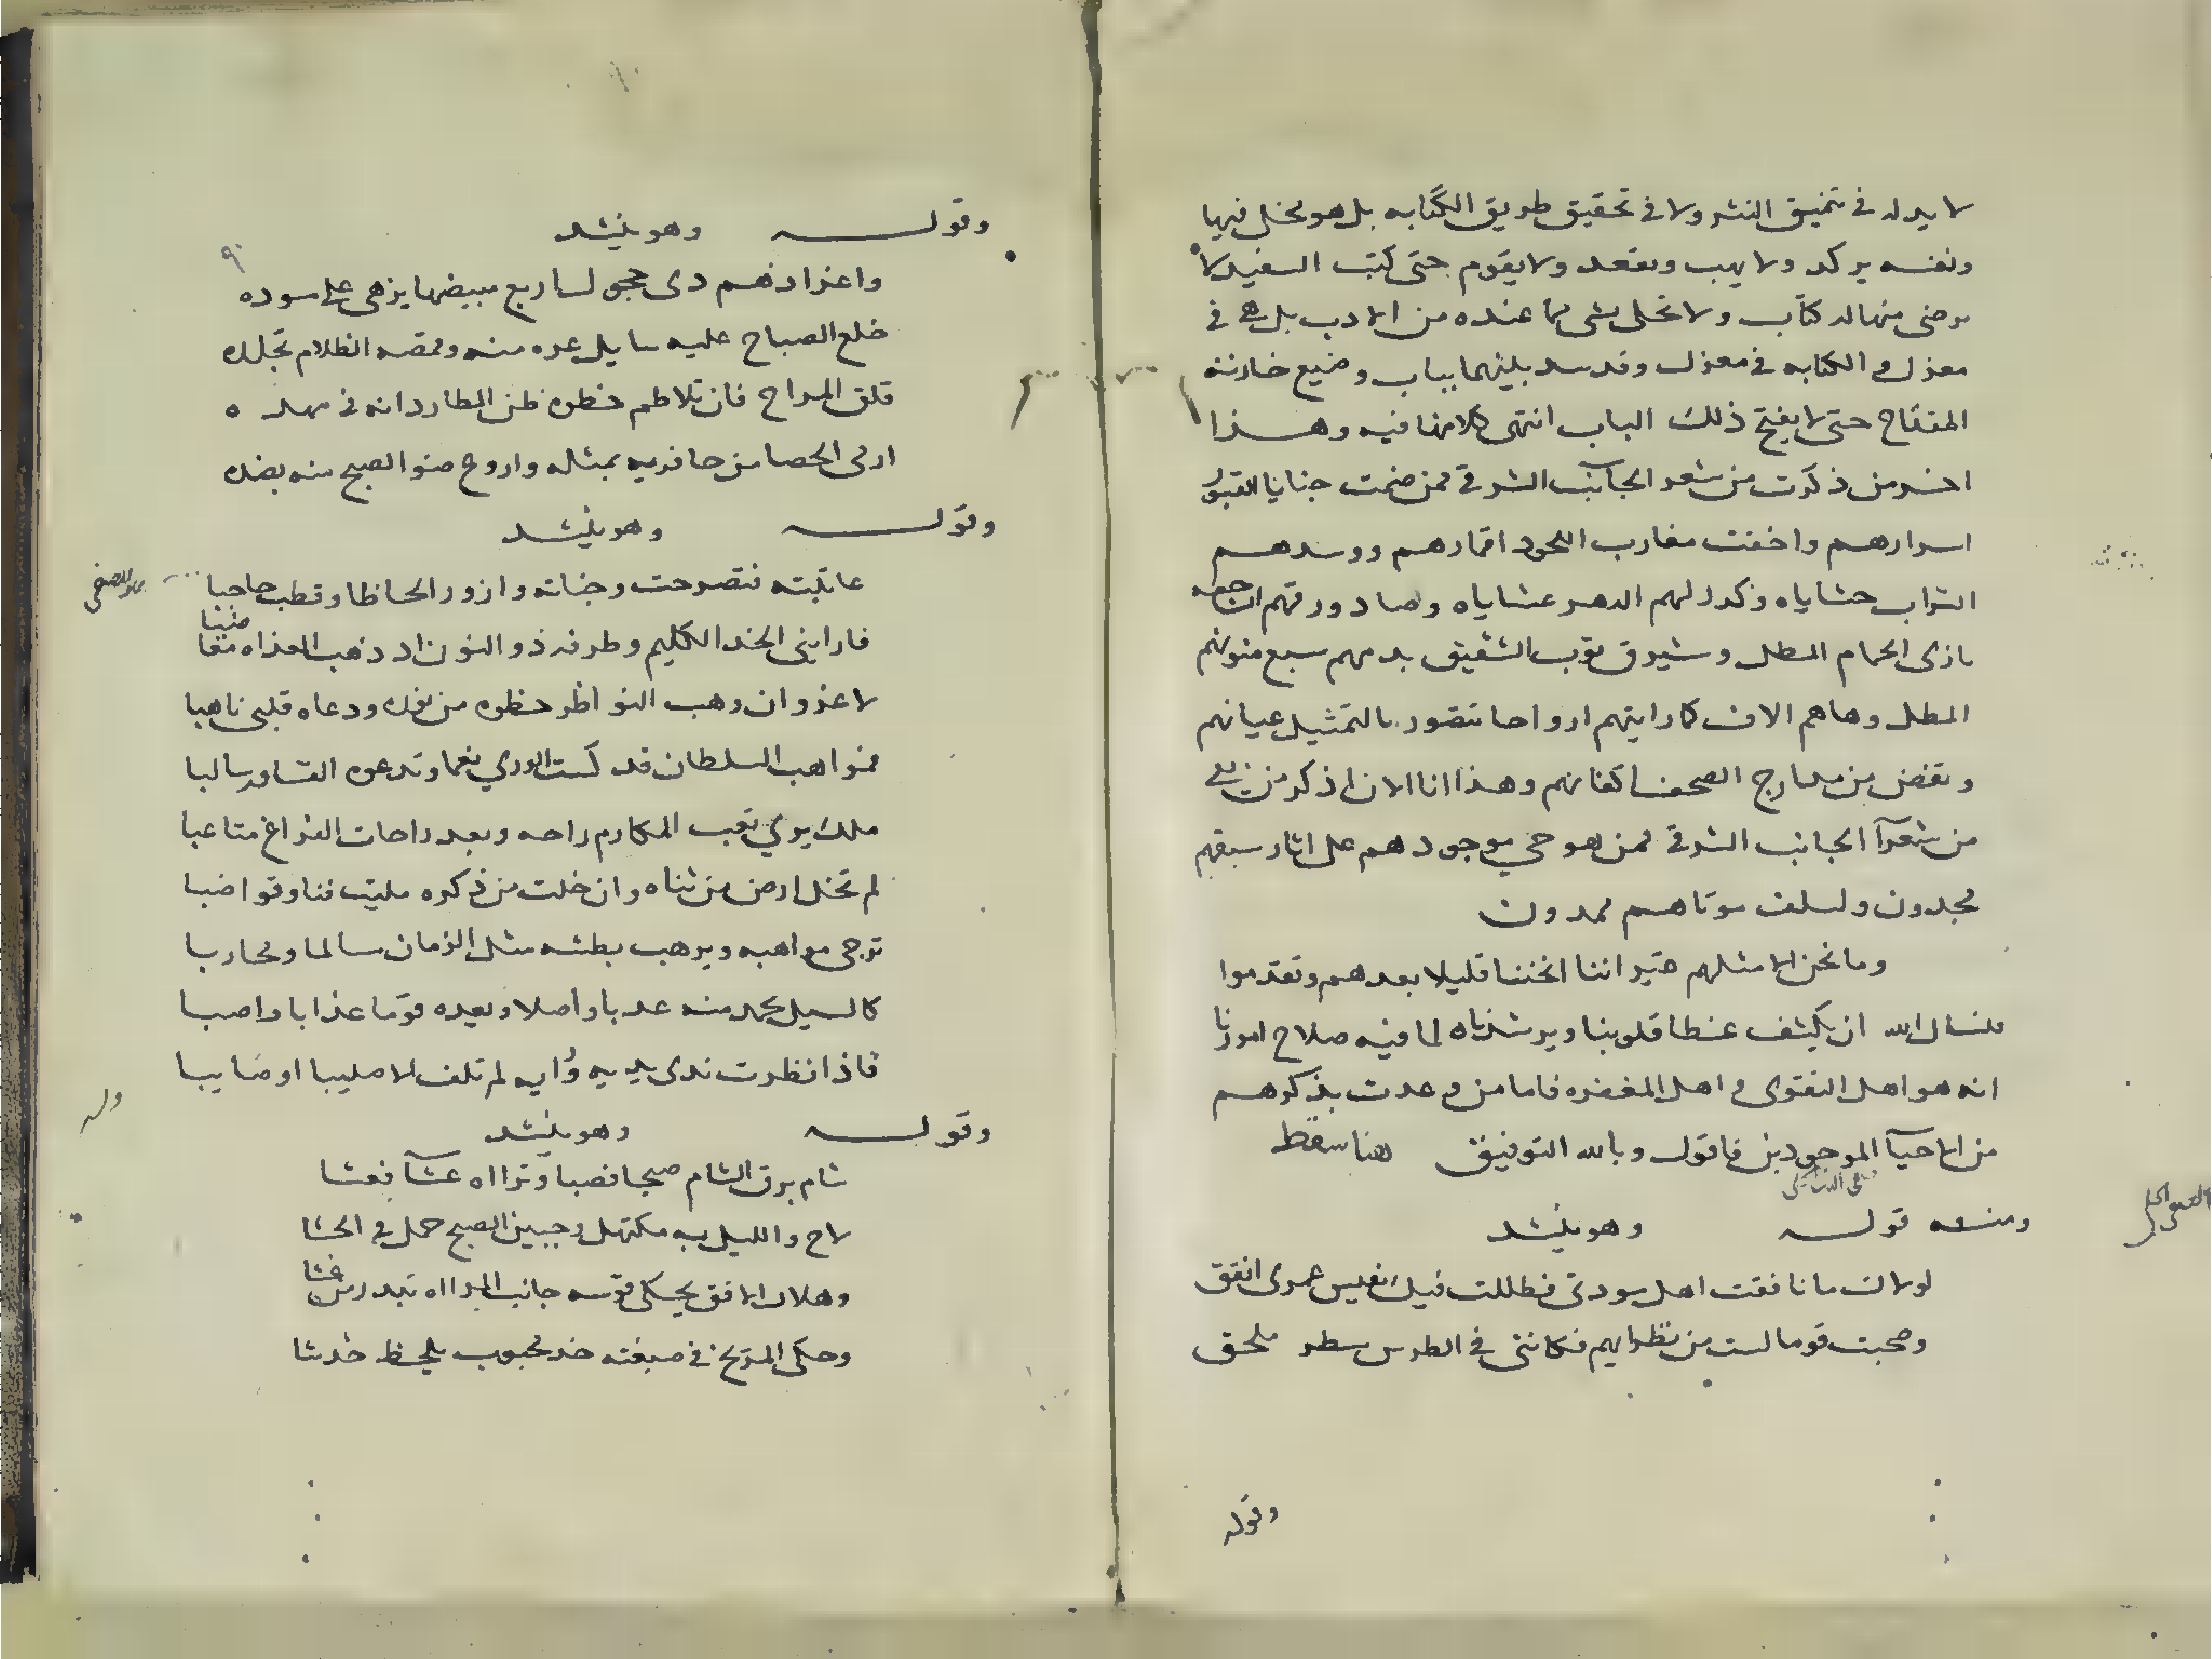 لا يدله في تنميق النثر ولا في تحقيق طريق الكتابه بل هو يخل فيها
ونفسه يركد ولا يهب ويقعد ولا يقوم حتى كتب السفيه لا
يرضى منها له كتاب ولا تحلى بشى مما عنده من الادب بل هي في
معزل والكتابه في معزل وقد سد بينهما بباب وضيع خازنه
المفتاح حتى لا يفتح ذلك الباب انتهى كلامنا فيه وهذا
اخر من ذكرت من شعر الجانب الشرقي ممن ضمت جنايا القبور
اسرارهم واخفت مغارب اللحود اقمارهم ووسدهم
التراب حشاياه وكدر لهم الدهر عشاياه وصاد ورقهم
بازى الحمام المطل وشبرق ثوب الشقيق بدمهم سبع منونهم
المطل وهاهم الان كما رايتهم ارواحا تتصور بالتمثيل عيانهم
وتفض من مدارج الصحف اكفانهم وهذا انا الان اذكر من
من شعرآ الجانب الشرقي ممن هو حي موجود هم على اثار سبقهم
مجدون ولسلف موتاهم ممدون
وما نحن الا مثلهم غير اننا اقمنا قليلا بعدهم وتقدموا
فنسال الله ان يكشف غطا قلوبنا ويرشدنا لما فيه صلاح امورنا
انه هو اهل التقوى واهل المغفره فاما من وعدت بذكرهم
من الاحيآ الموجودين فاقول وبالله التوفيق هنا سقط
ومنه قوله وهو ينشد
لولاك ما نافقت اهل مودتى فظللت فيك نفيس عمرى انفق
وصحبت قوما لست من نظرايهم فكاننى في الطرس سطر ملحق
وقوله
وقوله وهو ينشد
واغر ادهم ذى حجول اربع مبيضها يزهى على مسوده
خلع الصباح عليه سايل غره منه وقمصه الظلام بجلده
قلق المراح فان تلاطم خطوه ظن المطارد انه في مهده
ارمى الحصا من حافريه بمثله واروع ضو الصبح منه بضده
وقوله وهو ينشد
عاتبته فتضرجت وجناته وازور الحاظا وقطب حاجبا
فارابنى الخد الكليم وطرفه ذو النون اذ ذهب الغداه مغاضبا
لا غرو ان وهب النواظر حظوه من نوره ودعاه قلبى ناهبا
فمواهب السلطان قد كست الورى نعما وتدعوه القساور سالبا
ملك يرى تعب المكارم راحه ويعد راحات الفراغ متاعبا
لم تخل ارض من ثناه وان خلت من ذكره مليت قنا وقواضبا
ترجى مواهبه ويرهب بطشه مثل الزمان سالما ومحاربا
كالسيل يحمد منه عذبا واصلا ويعده قوما عذابا واصبا
فاذا نظرت ندى يديه ورايه لم تلف الا صيبا او صايبا
وله
وقوله وهو ينشد
شام برق الشام صبحا فصبا وتراه عشآ فعشا
لاح والليل به مكتهل وجبين الصبح حمل في الحشا
وهلال الافق يحكى قوسه جانب المراه تبدو من غشا
وحكى المريخ في صبغته خد محبوب بلحظ خدشا